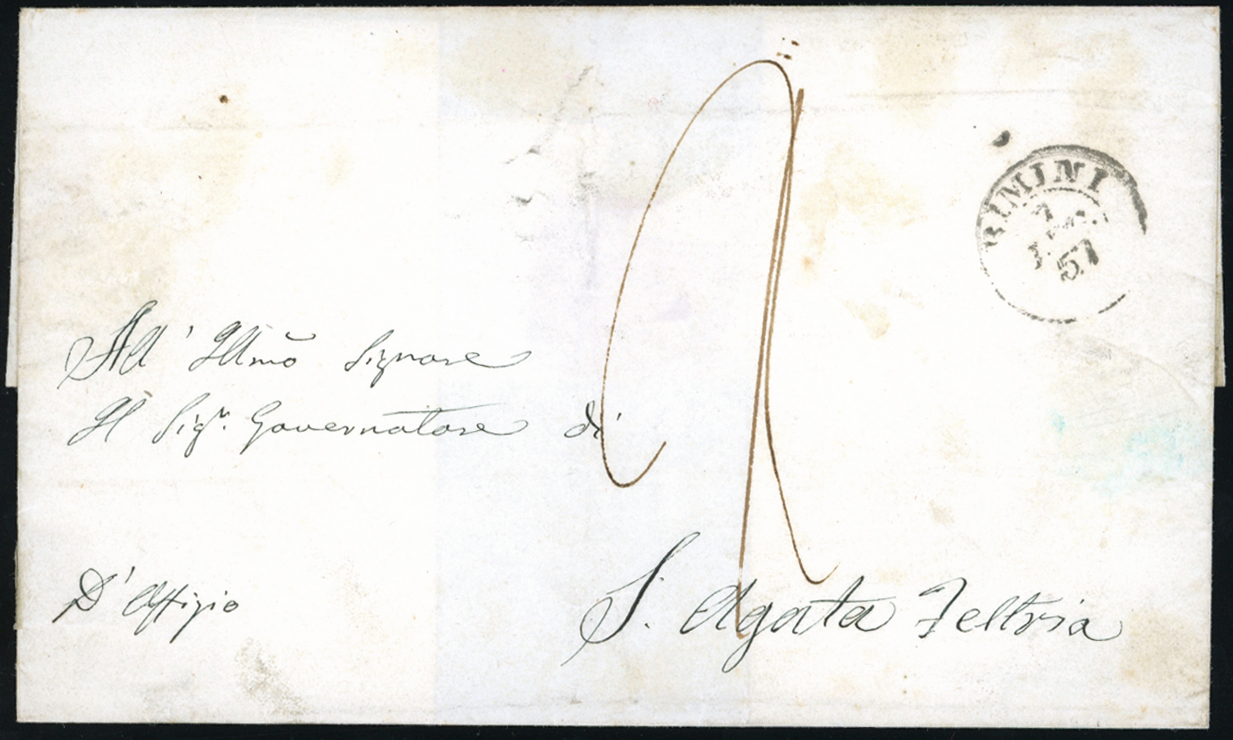 RIMINI
57
All' Illmo Signore
Il Sigr. Governatore di
S. Agata Feltria
D'Offizio